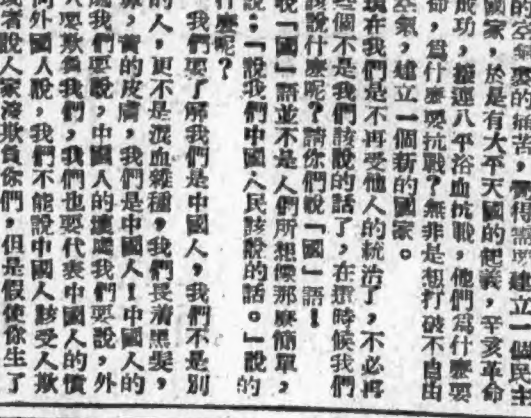 的痛苦,相需要建立一個民主
國家,於是有大平天國的起義,辛亥革命
成功,接連八年浴血抗戰,他們爲什麽要
命,爲什麽要抗戰?無非是想打破不自由
空氣,建立一個新的國家。
現在我們是不再受他人的統治了,不必再
些個不是我們該說的話了,在這時候我們
該說什麽呢?請你們說「國」語!
說「國」語並不是人們所想像那麽簡單,
說:「說我們中國人民該說的話。」說的
什麽呢?
我們要了解我們是中國人,我們不是別
的人,更不是混血雜種,我們長着黑髮,
黃的皮膚,我們是中國人!中國人的
處我們要說,中國人的壞處我們要說,外
人要欺負我們,我們也要代表中國人的憤
向外國人說,我們不能說中國人該受人欺
或者說人家欺負你們,但是假使你生了